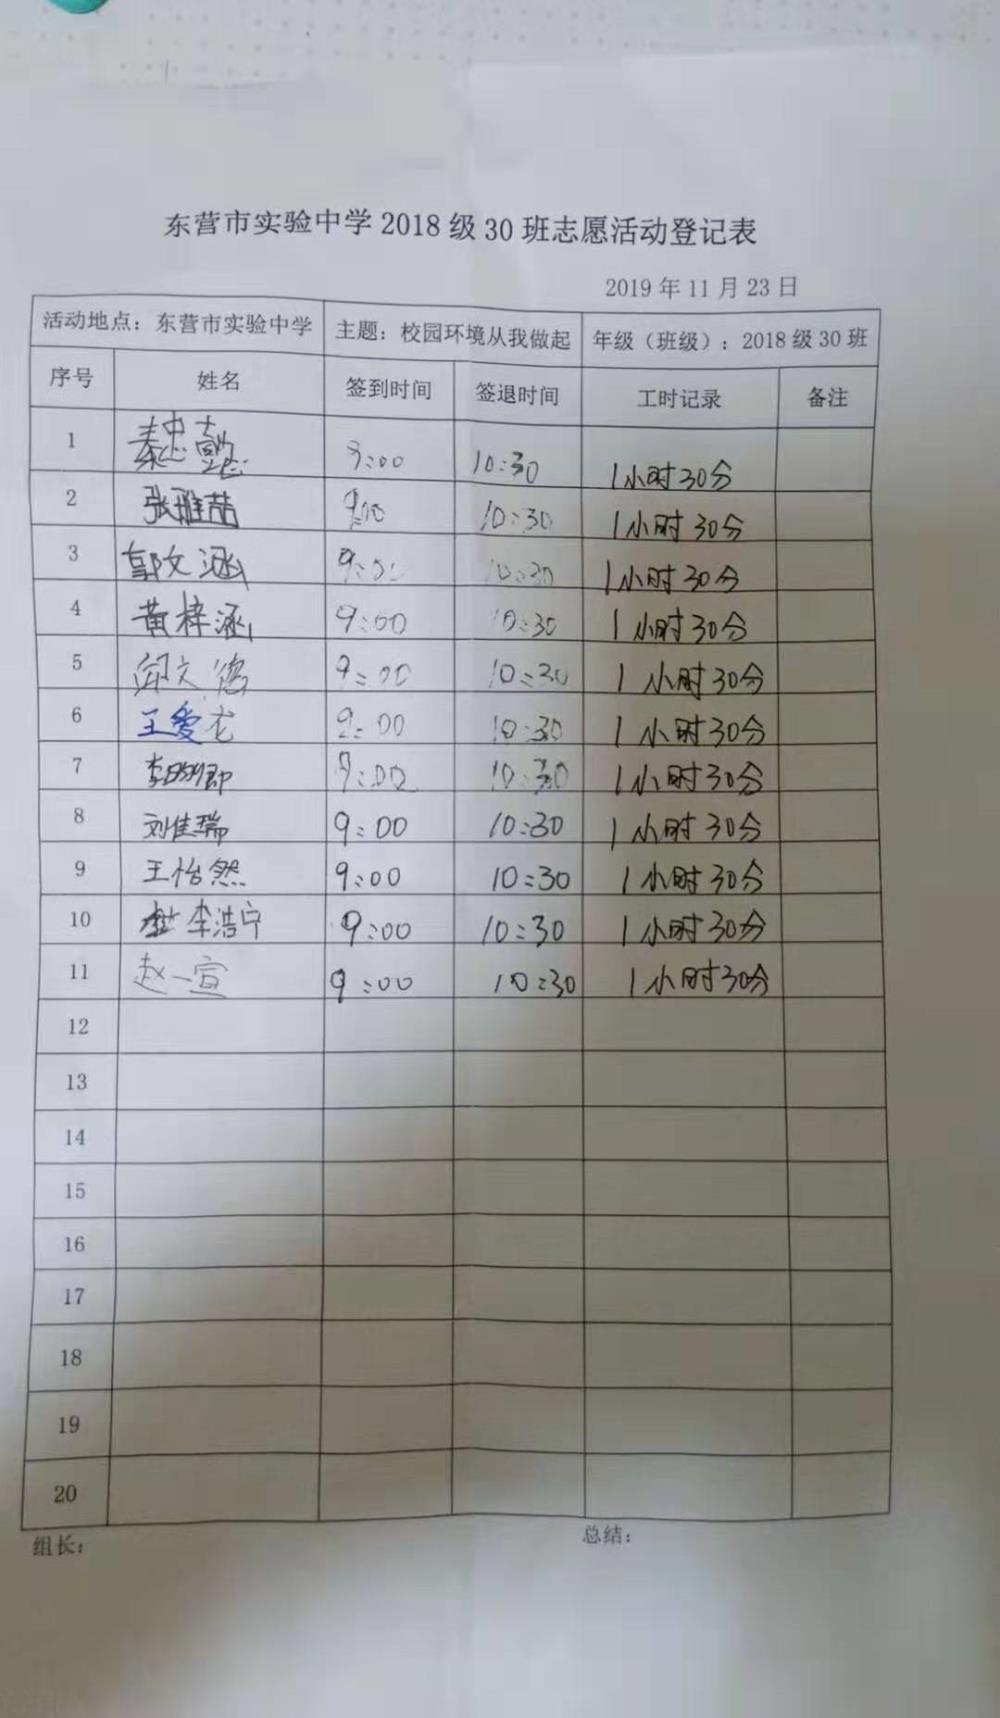 东营市实验中学2018级30班志愿活动登记表
2019年11月23日
活动地点：东营市实验中学 主题：校园环境从我做起 年级（班级）：2018级30班
序号 姓名 签到时间 签退时间 工时记录 备注
1 秦忠 9:00 10:30 1小时30分
2 张雅茹 9:00 10:30 1小时30分
3 郭文涵 9:00 10:30 1小时30分
4 黄梓涵 9:00 10:30 1小时30分
5 文德 9:00 10:30 1小时30分
6 王爱龙 9:00 10:30 1小时30分
7 李 9:00 10:30 1小时30分
8 刘佳瑞 9:00 10:30 1小时30分
9 王怡然 9:00 10:30 1小时30分
10 李浩宁 9:00 10:30 1小时30分
11 赵一宣 9:00 10:30 1小时30分
12
13
14
15
16
17
18
19
20
组长： 总结：